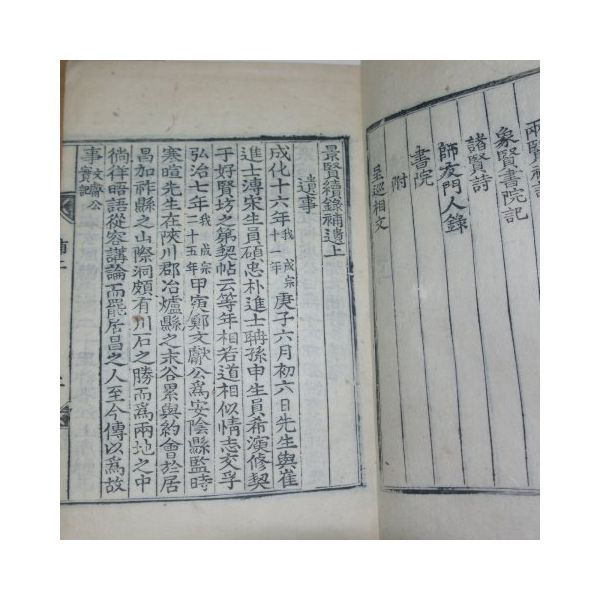 兩賢
象賢書院記
諸賢詩
師友門人錄
書院
附
呈巡相文
景賢續錄補遺上
遺事
成化十六年我成宗十一年庚子六月初六日先生與崔
進士溥宋生員碩忠朴進士聃孫申生員希演修契
于好賢坊之第契帖云等年相若道相似情志交孚
弘治七年我成宗二十五年甲寅鄭文獻公爲安陰縣監時
寒暄先生在陜川郡冶爐縣之末谷累與約會於居
昌加祚縣之山際洞頗有川石之勝而爲兩地之中
徜徉晤語從容講論而罷居昌之人至今傳以爲故
事文獻公實記